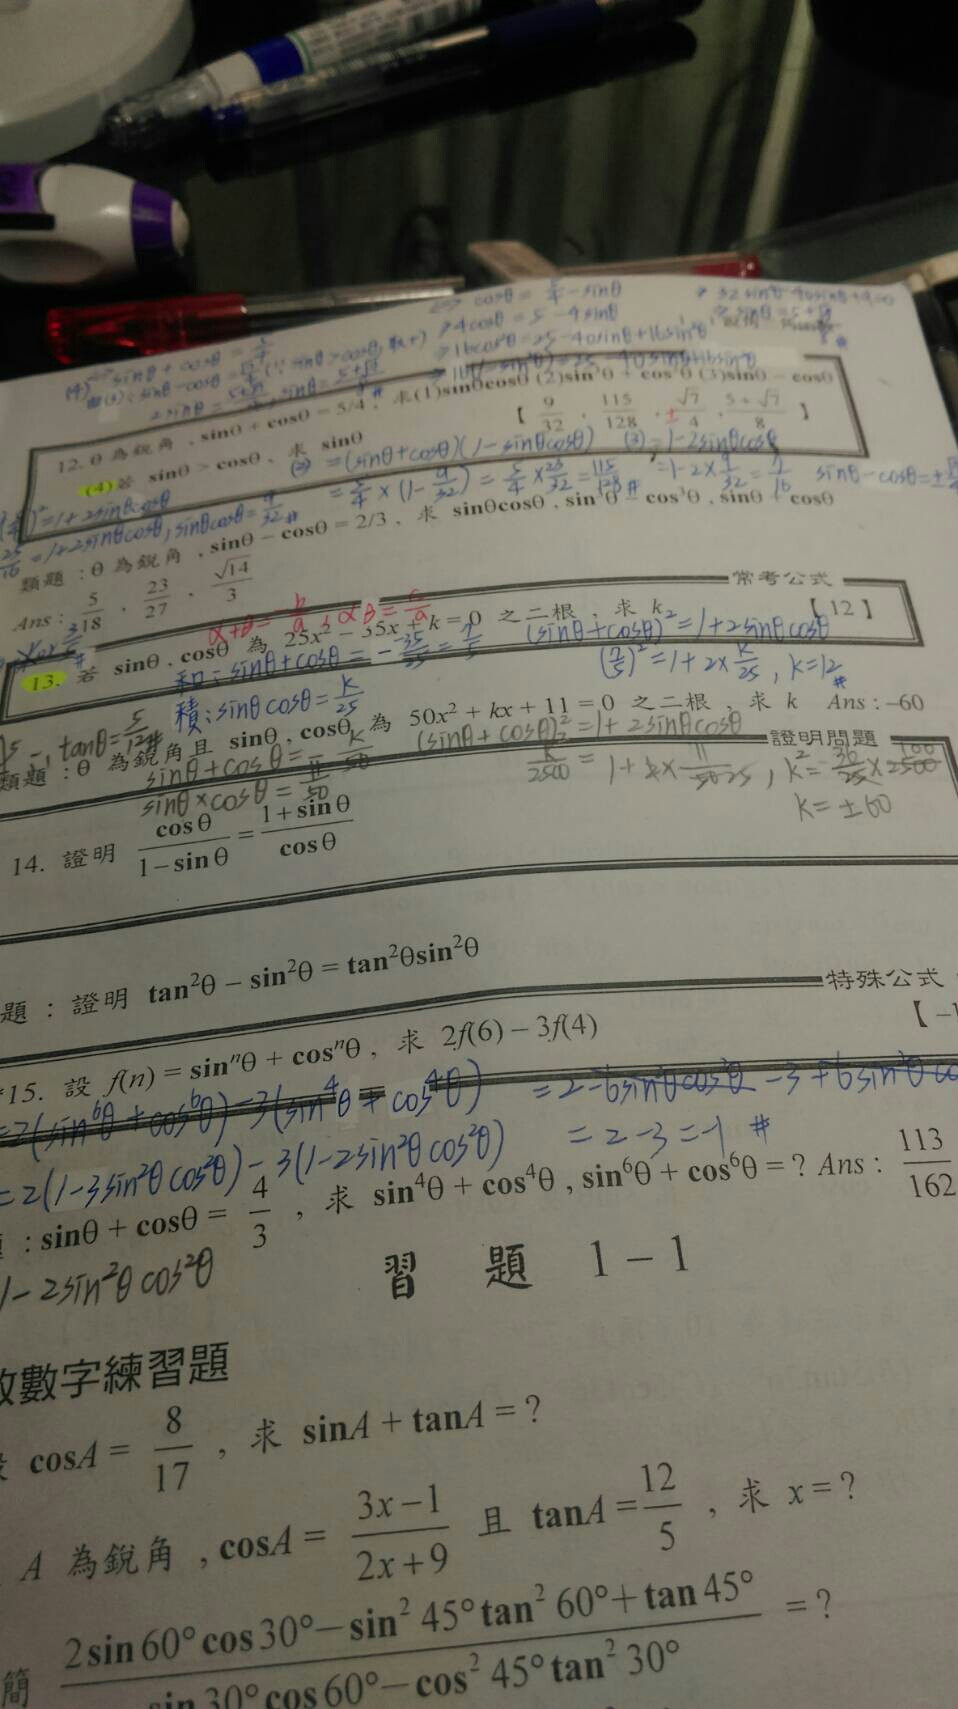 ⇔ cosθ = 5/4 - sinθ
⇒ 4cosθ = 5 - 4sinθ
⇒ 16cos²θ = 25 - 40sinθ + 16sin²θ
12. θ 為銳角，sinθ + cosθ = 5/4，求(1)sinθcosθ (2)sin³θ + cos³θ (3)sinθ - cosθ
(4)若 sinθ > cosθ，求 sinθ 【 9/32 , 115/128 , ± √7/4 , 5+√7/8 】
(2) = (sinθ+cosθ)(1-sinθcosθ) (3) = 1-2sinθcosθ
= 5/4 × (1 - 9/32) = 5/4 × 23/32 = 115/128 # = 1-2×9/32 = 7/16 sinθ-cosθ = ±
25/16 = 1+2sinθcosθ, sinθcosθ = 9/32 #
類題：θ 為銳角，sinθ - cosθ = 2/3，求 sinθcosθ，sin³θ - cos³θ，sinθ + cosθ
Ans : 5/18 , 23/27 , √14/3
常考公式
α+β = -b/a , αβ = c/a
13. 若 sinθ、cosθ 為 25x² - 35x + k = 0 之二根，求 k 【 12 】
和: sinθ+cosθ = --35/25 = 7/5 (sinθ+cosθ)² = 1+2sinθcosθ
積: sinθcosθ = k/25 (7/5)² = 1+2×k/25, k=12 #
tanθ = 5/12 #
類題：θ 為銳角且 sinθ、cosθ 為 50x² + kx + 11 = 0 之二根，求 k Ans : -60
sinθ + cosθ = -k/50 (sinθ + cosθ)² = 1+2sinθcosθ
sinθ × cosθ = 11/50 k²/2500 = 1+2×11/50 25, k² = 36/25 × 2500 100
k = ±60
證明問題
14. 證明 cosθ/1-sinθ = 1+sinθ/cosθ
題：證明 tan²θ - sin²θ = tan²θsin²θ
特殊公式
*15. 設 f(n) = sinⁿθ + cosⁿθ，求 2f(6) - 3f(4) 【 -1
=2(sin⁶θ + cos⁶θ) - 3(sin⁴θ + cos⁴θ) = 2-6sin²θcos²θ - 3 + 6sin²θco
=2(1-3sin²θcos²θ) - 3(1-2sin²θcos²θ) = 2-3 = -1 #
: sinθ + cosθ = 4/3，求 sin⁴θ + cos⁴θ , sin⁶θ + cos⁶θ = ? Ans : 113/162
1-2sin²θcos²θ
習 題 1 - 1
數字練習題
cosA = 8/17，求 sinA + tanA = ?
A 為銳角，cosA = 3x-1/2x+9 且 tanA = 12/5，求 x = ?
簡 2sin60°cos30°-sin²45°tan²60°+tan45°/sin30°cos60°-cos²45°tan²30° = ?